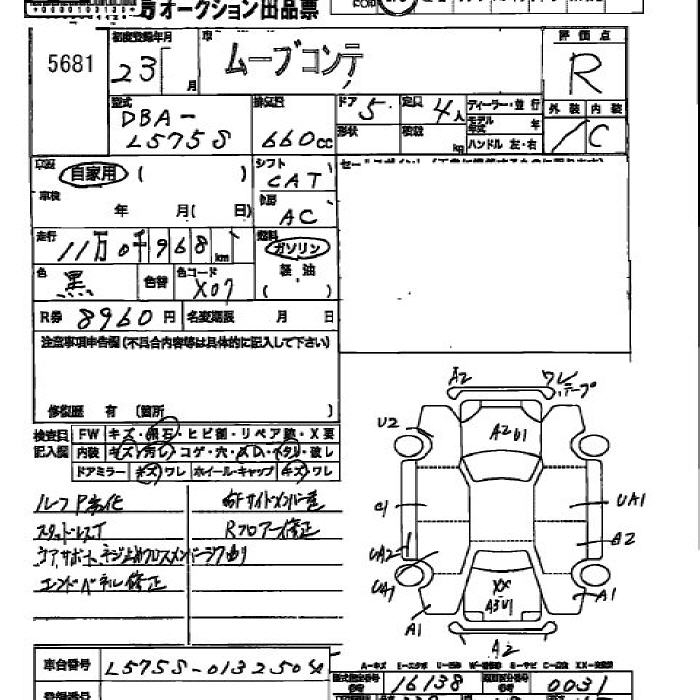 オークション出品票
5681
初度登録年月
23 月
ムーブコンテ
評価点
R
型式
DBA-
L575S
排気量
660cc
ドア 5
定員 4人
形状
積載 kg
ディーラー・並行
モデル年式 年
ハンドル 左・右
外装 内装
/ C
自家用 ( )
シフト
CAT
車検
年 月( 日)
AC
走行
11万0千968km
燃料
ガソリン
軽油
( )
色
黒
色替
色コード
X07
R券 8960円
名変期限 月 日
注意事項申告欄(不具合内容等は具体的に記入して下さい)
修復歴 有 (箇所
検査員 FW キズ・飛石・ヒビ割・リペア跡・X要
記入欄 内装 キズ・汚レ・コゲ・穴
ドアミラー キズ・ワレ ホイール・キャップ キズ・ワレ
ルーフP劣化
スタッドレスT
コアサポートネジ止メクロスメンバー
エンドパネル修正
Rフロアー修正
A2 ワレ テープ
U2
A2U1
C1
UA1
A2
UA2
UA1
XX
A3U1
A1
A1
A2
車台番号 L575S-0132508
A-キズ E-エクボ
16138
0031